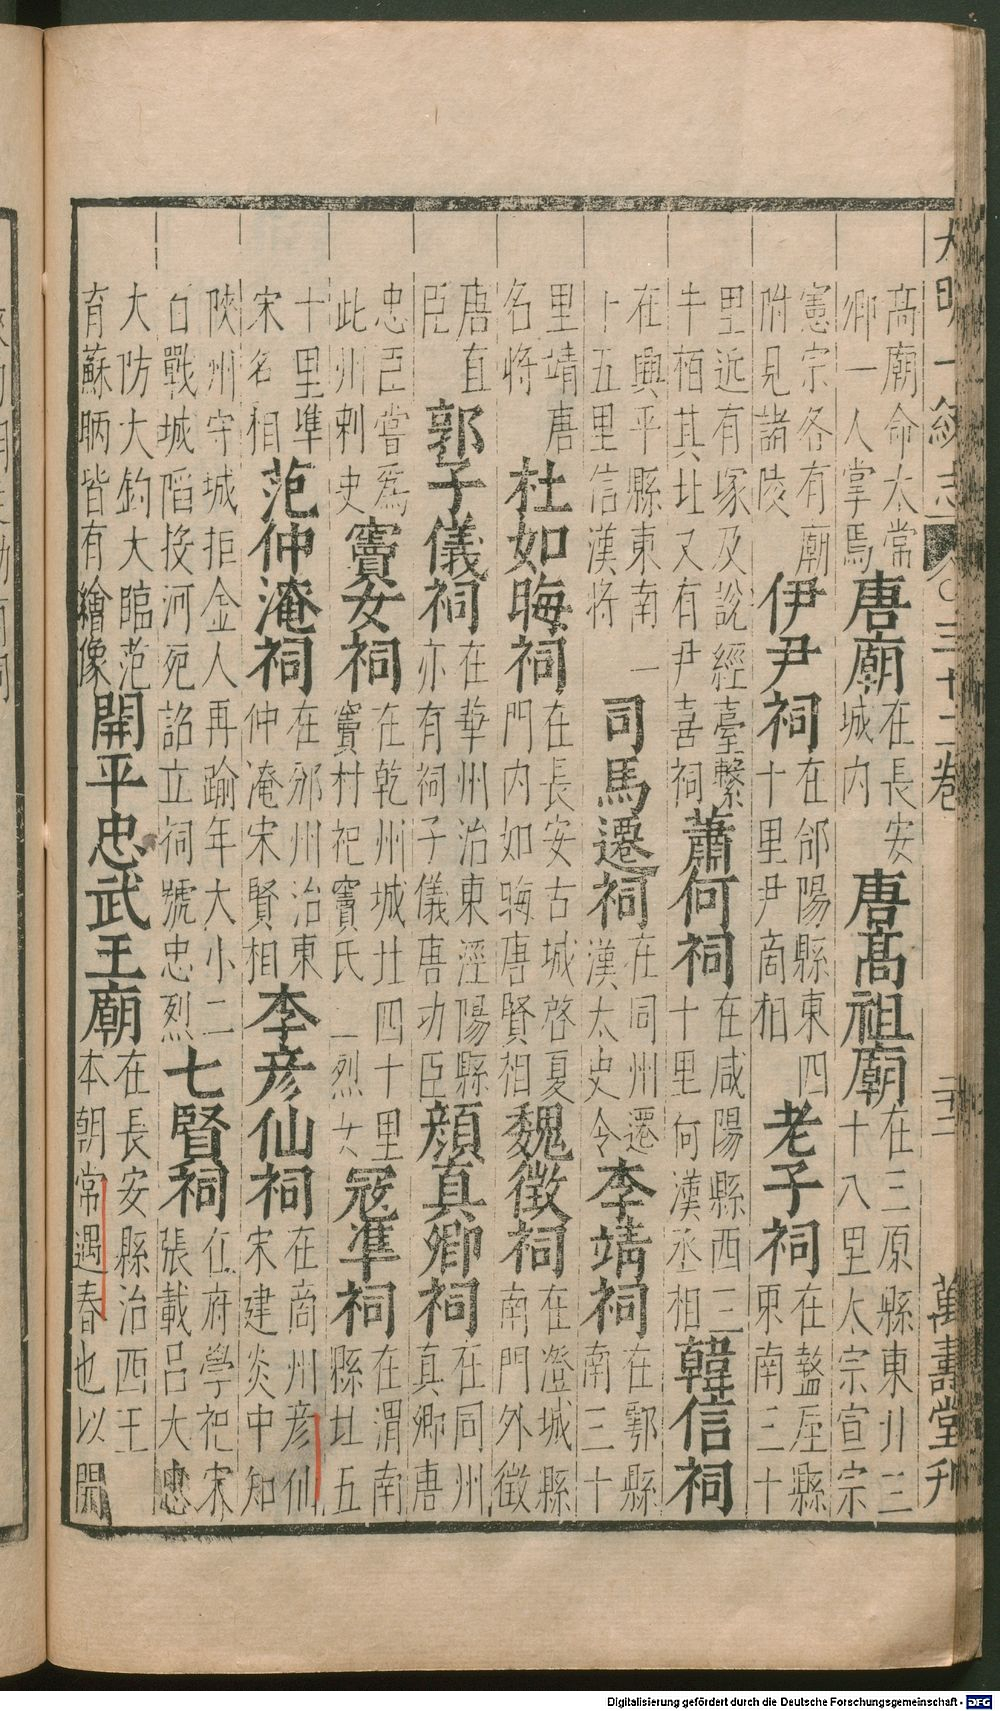 大明一統志 三十二卷 萬壽堂刋
高廟命太常
卿一人掌焉
唐廟
在長安
城内
唐高祖廟
在三原縣東北三
十八里太宗宣宗
憲宗各有廟
附見諸陵
伊尹祠
在郃陽縣東四
十里尹商相
老子祠
在盩厔縣
東南三十
里近有塚及說經臺繫
牛栢其北又有尹喜祠
蕭何祠
在咸陽縣西三
十里何漢丞相
韓信祠
在興平縣東南一
十五里信漢將
司馬遷祠
在同州遷
漢太史令
李靖祠
在鄠縣
南三十
里靖唐
名將
杜如晦祠
在長安古城啓夏
門内如晦唐賢相
魏徵祠
在澄城縣
南門外徵
唐直
臣
郭子儀祠
在華州治東涇陽縣
亦有祠子儀唐功臣
顏真卿祠
在同州
真卿唐
忠臣嘗爲
此州刺史
竇女祠
在乾州城北四十里
竇村祀竇氏二烈女
冦準祠
在渭南
縣北五
十里準
宋名相
范仲淹祠
在邠州治東
仲淹宋賢相
李彦仙祠
在商州彦仙
宋建炎中知
陜州守城拒金人再踰年大小二
百戰城陷投河死詔立祠號忠烈
七賢祠
在府學祀宋
張載吕大忠
大防大鈞大臨范
育蘇昞皆有繪像
開平忠武王廟
在長安縣治西王
本朝常遇春也以開
Digitalisierung gefördert durch die Deutsche Forschungsgemeinschaft - DFG